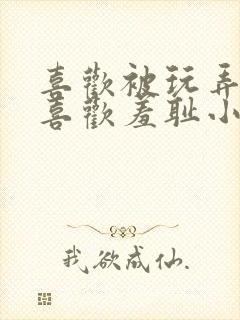 喜歡被玩弄
喜歡羞耻小
我欲成仙.